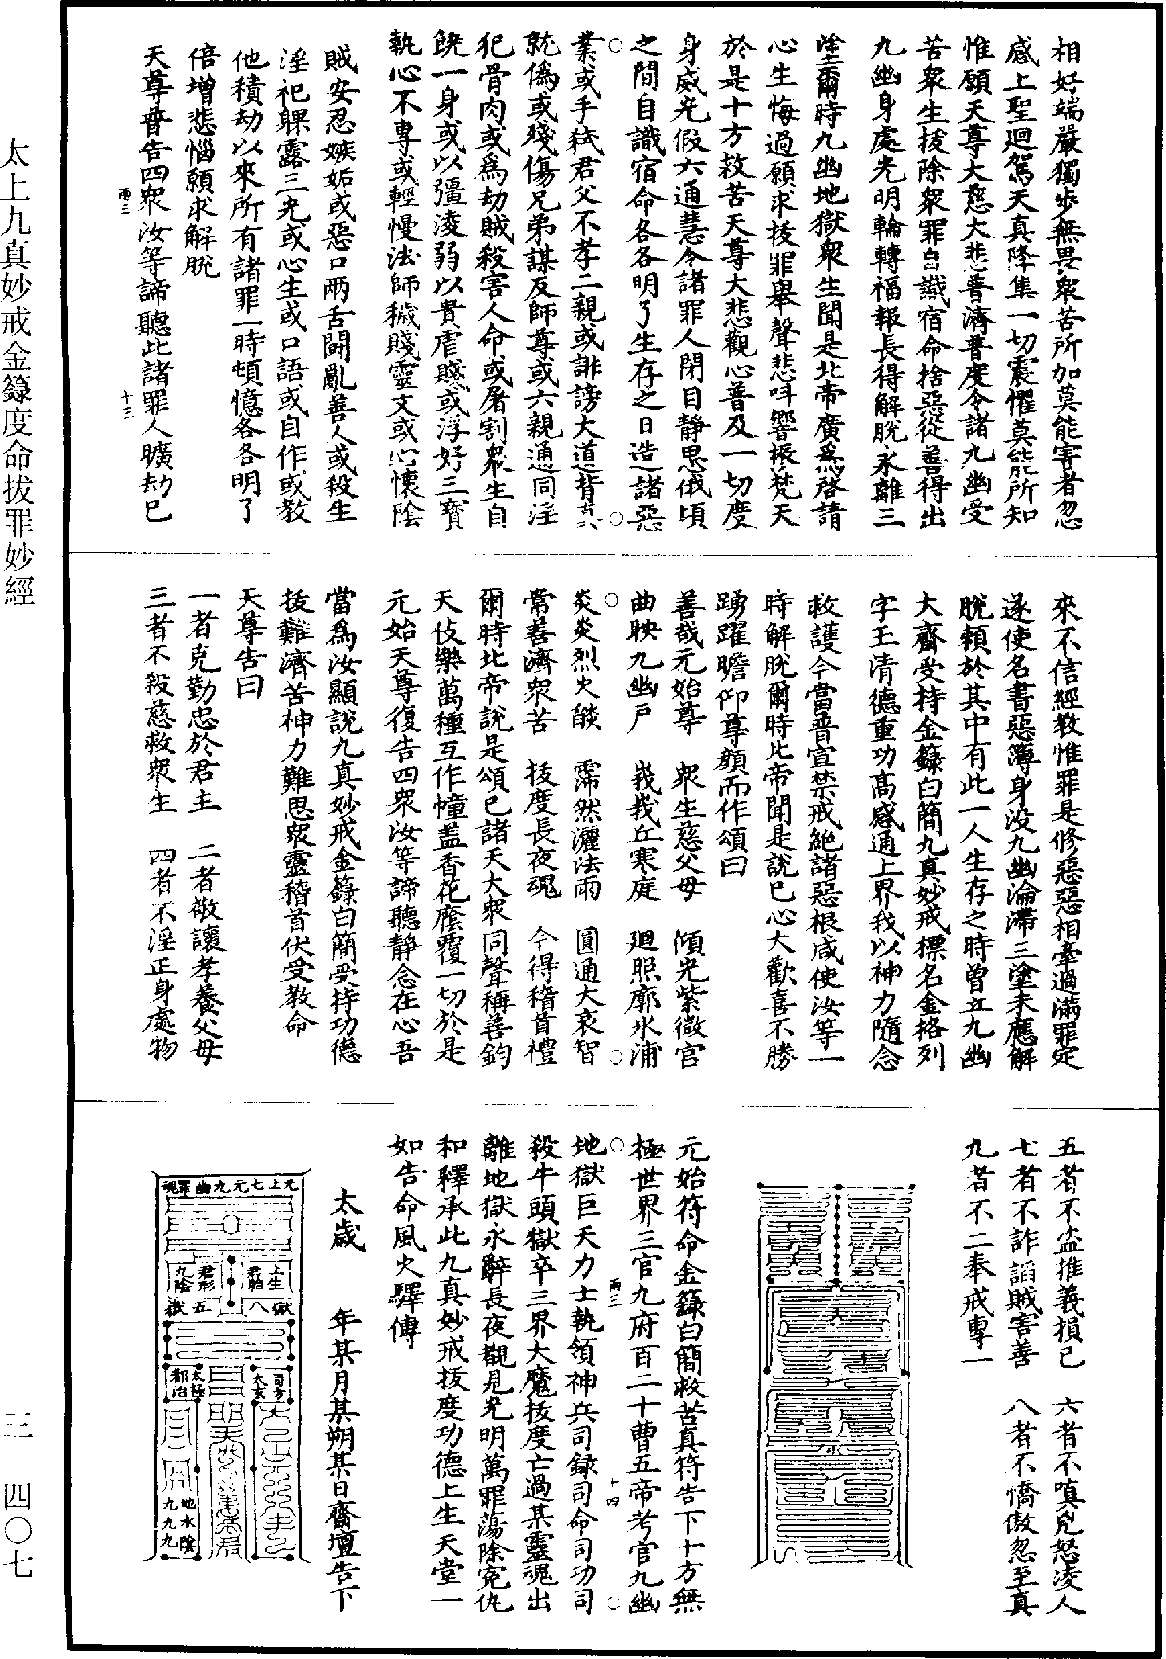 相好端嚴獨步無畏衆苦所加莫能害者忽
感上聖迴駕天真降集一切震懼莫能所知
惟願天尊大慈大悲普濟普度令諸九幽受
苦衆生拔除衆罪自識宿命捨惡從善得出
九幽身處光明輪轉福報長得解脫永離三
塗爾時九幽地獄衆生聞是北帝廣爲啓請
心生悔過願求拔罪舉聲悲叫響振梵天
於是十方救苦天尊大悲觀心普及一切度
身威光假六通慧令諸罪人閉目靜思俄頃
之間自識宿命各各明了生存之日造諸惡
業或手弑君父不孝二親或誹謗大道背真
就僞或殘傷兄弟謀反師尊或六親通同淫
犯骨肉或爲劫賊殺害人命或屠割衆生自
饒一身或以彊淩弱以貴虐賤或浮好三寶
執心不專或輕慢法師穢賤靈文或心懷陰
賊安忍嫉妬或惡口兩舌鬪亂善人或殺生
淫祀躶露三光或心生或口語或自作或教
他積劫以來所有諸罪一時頓憶各各明了
倍增悲惱願求解脫
天尊普告四衆汝等諦聽此諸罪人曠劫已
雨三
十三
來不信經教惟罪是修惡惡相牽過滿罪定
遂使名書惡簿身没九幽淪滯三塗未應解
脫頼於其中有此一人生存之時曾立九幽
大齋受持金籙白簡九真妙戒標名金格列
字玉清德重功高感通上界我以神力隨念
救護今當普宣禁戒絶諸惡根咸使汝等一
時解脫爾時北帝聞是說已心大歡喜不勝
踴躍瞻仰尊顏而作頌曰
善哉元始尊　衆生慈父母　傾光紫微宮
曲映九幽戶　峩峩丘寒庭　廻照廓氷浦
炎炎烈火燄　霈然灑法雨　圓通大哀智
常善濟衆苦　拔度長夜魂　今得稽首禮
爾時北帝說是頌已諸天大衆同聲稱善鈞
天伎樂萬種互作幢蓋香花廕覆一切於是
元始天尊復告四衆汝等諦聽靜念在心吾
當爲汝顯說九真妙戒金籙白簡受持功德
拔難濟苦神力難思衆靈稽首伏受教命
天尊告曰
一者克勤忠於君主　二者敬讓孝養父母
三者不殺慈救衆生　四者不淫正身處物
五者不盜推義損己　六者不嗔兇怒凌人
七者不詐諂賊害善　八者不憍傲忽至真
九者不二奉戒專一
元始符命金籙白簡救苦真符告下十方無
極世界三官九府百二十曹五帝考官九幽
雨三
十四
地獄巨天力士執領神兵司錄司命司功司
殺牛頭獄卒三界大魔拔度亡過某靈魂出
離地獄永辭長夜觀見光明萬罪蕩除寃仇
和釋承此九真妙戒拔度功德上生天堂一
如告命風火驛傳
太歲　年某月某朔某日齋壇告下
元上七元九幽罪魂
上生
君胎
君形
九陰
獄八五嶽
地水陰
九九九
太上九真妙戒金籙度命拔罪妙經
三　四〇七